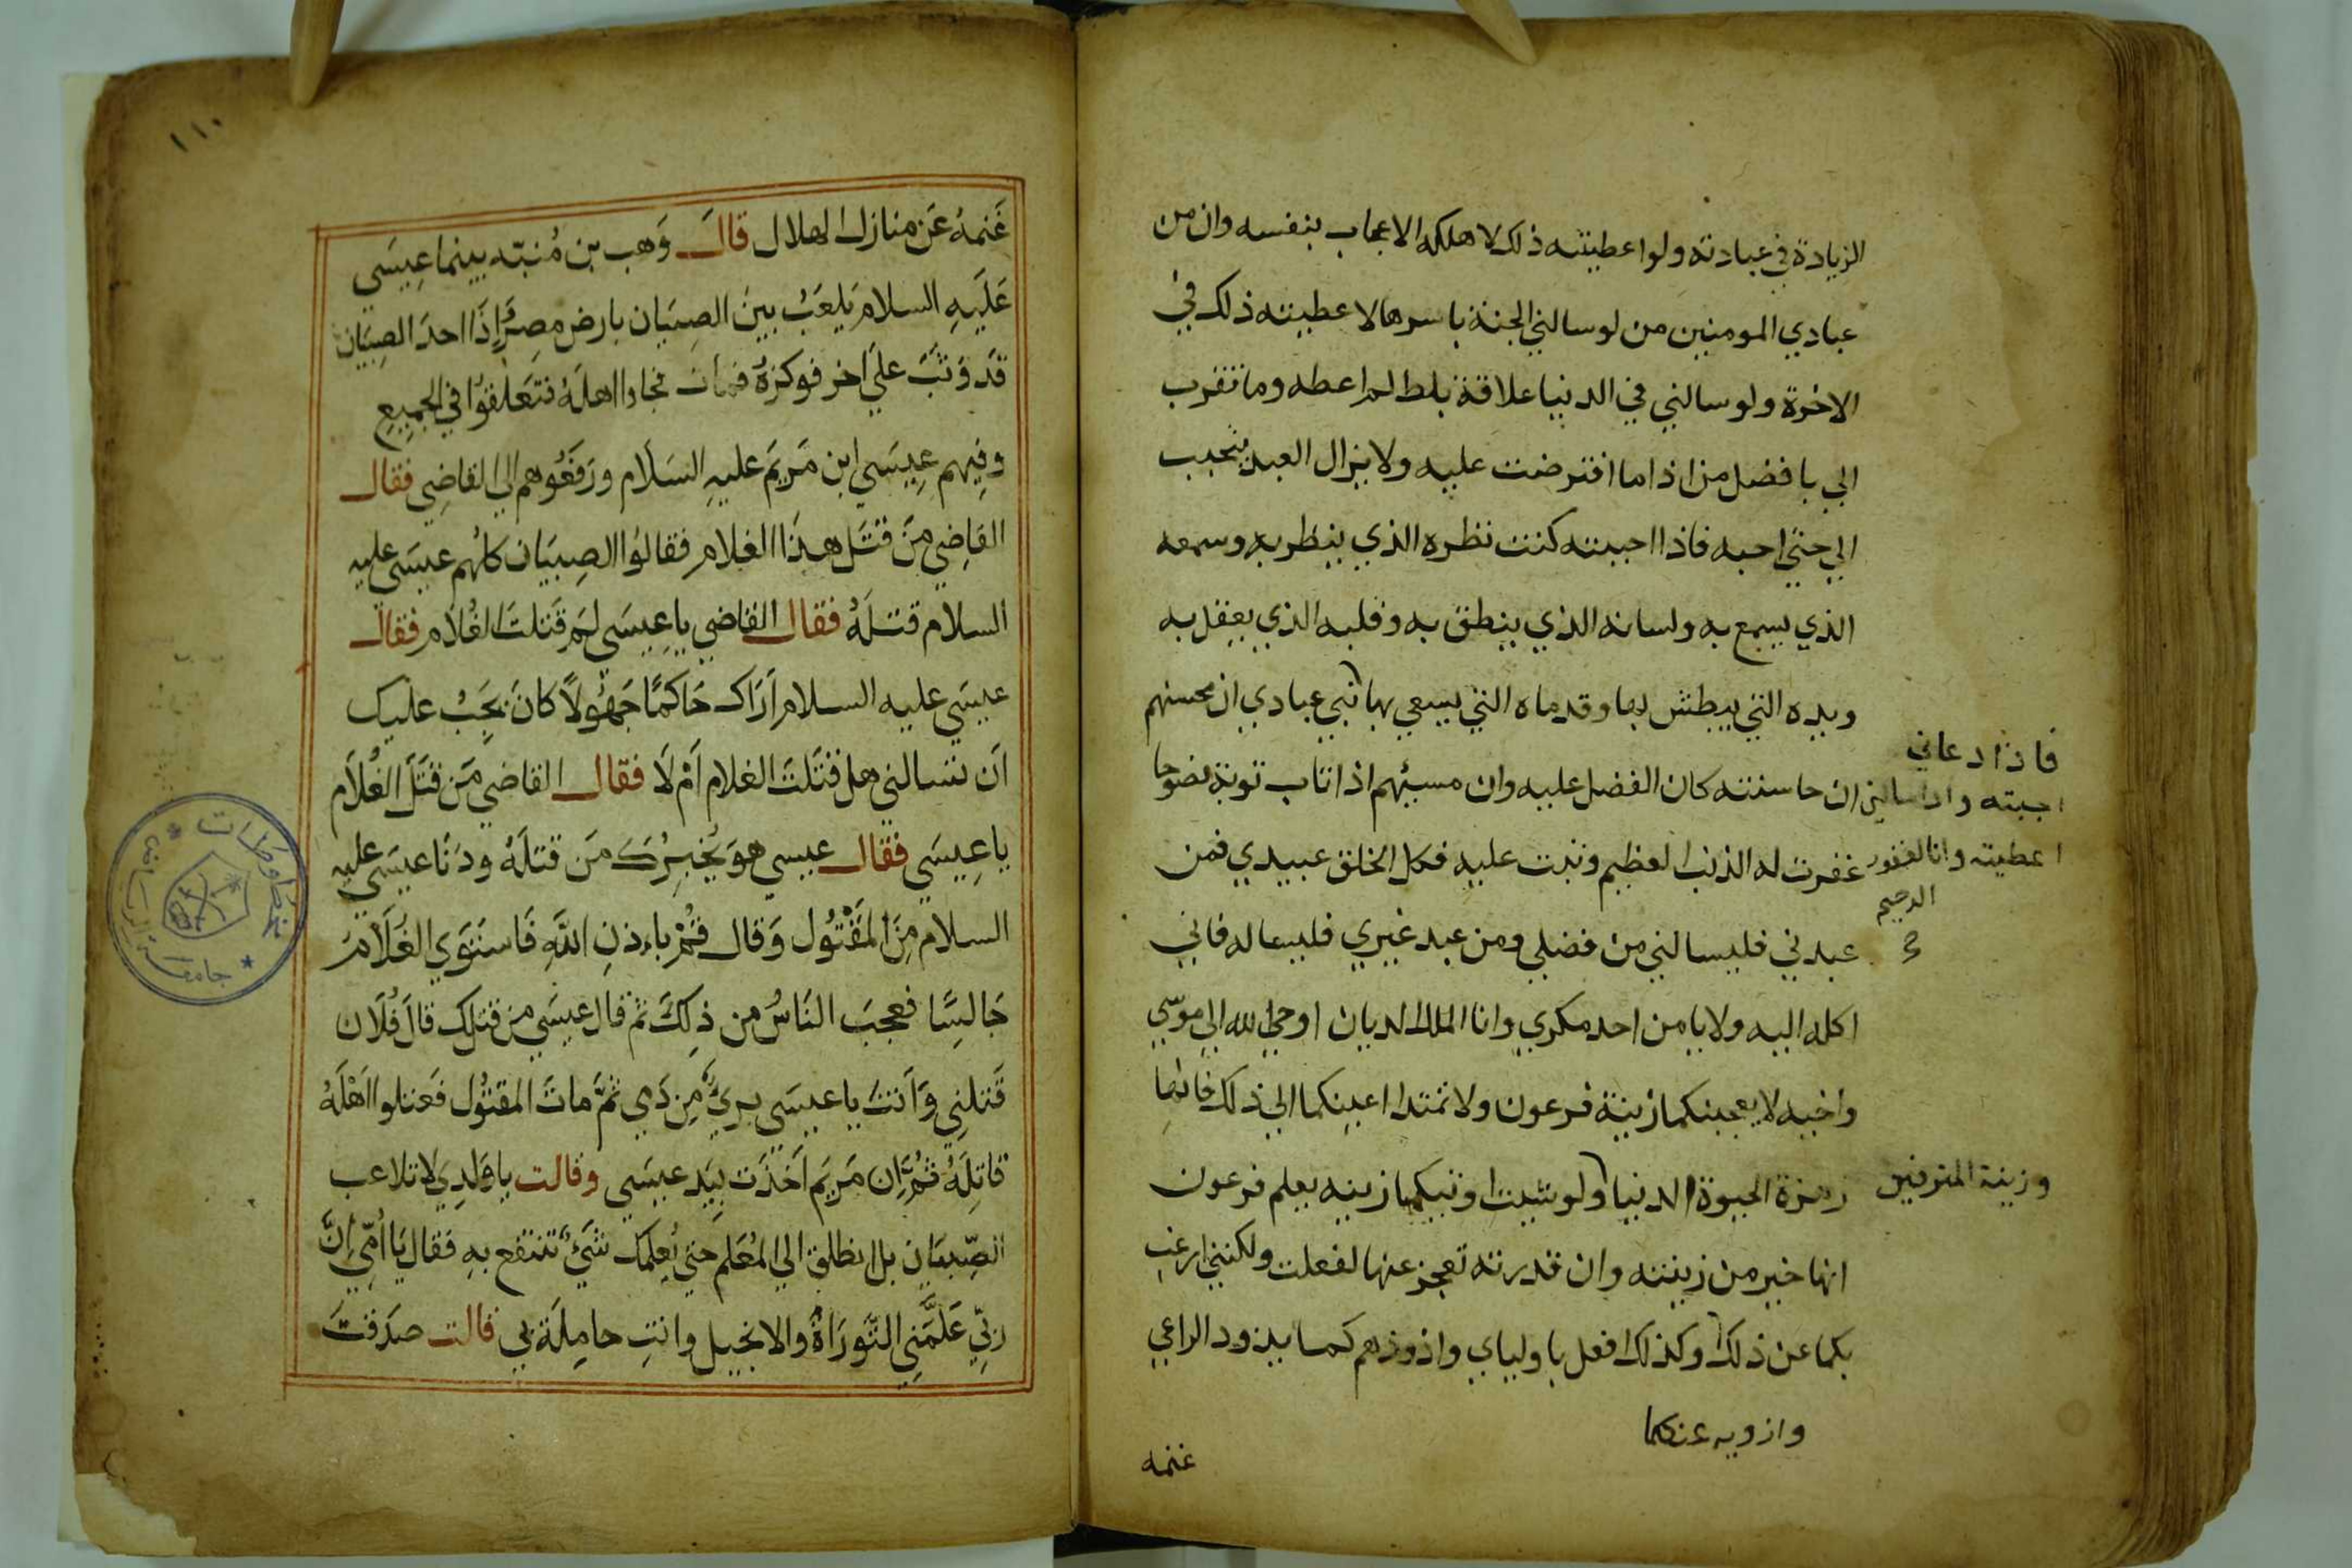 الزيادة في عبادته ولو اعطيته ذلك لاهلكه الاعجاب بنفسه وان من
عبادي المومنين من لو سالني الجنة باسرها لاعطيته ذلك في
الاخرة ولو سالني في الدنيا علاقة بلط لم اعطه وما تقرب
الي بافضل من اذا ما افترضت عليه ولا يزال العبد يتحبب
الي حتي احبه فاذا احببته كنت نظره الذي ينظر به وسمعه
الذي يسمع به ولسانه الذي ينطق به وقلبه الذي يعقل به
ويده التي يبطش بها وقدماه التي يسعي بها نبي عبادي ان محسنهم
فاذا دعاني
اجبته واذا سالني
اعطيته وانا الغفور
الرحيم
صح
ان حاسنته كان الفضل عليه وان مسيئهم اذا تاب توبة نضوحا
غفرت له الذنب العظيم وتبت عليه فكل الخلق عبيدي فمن
عبدني فليسالني من فضلي ومن عبد غيري فليساله فاني
اكله اليه ولا يامن احد مكري وانا الملك الديان اوحي الله الي موسي
واخيه لا يعجبنكما زينة فرعون ولا تمتدا اعينكما الي ذلك فانها
زهرة الحيوة الدنيا ولو شيت اوتيكما زينه يعلم فرعون
وزينة المترفين
انها خير من زينته وان قدرته تعجز عنها لفعلت ولكنني ارغب
بكما عن ذلك وكذلك افعل باولياي واذودهم كما يذود الراعي
وازويه عنكما
غنمه
١١٠
غَنمهُ عَن منازل الهلال قالَ وَهب بن مُنبّه بينما عِيسَي
عَلَيهِ السلام يَلعَبُ بينَ الصِبيَان بارض مِصرَ إذَا احدَ الصِبيَان
قَد وَثَبَ علَي اخر فوكزهُ فمات فجاوا اهلَهُ فتعَلقوُا في الجميعِ
وفِيهم عِيسَي ابن مَريَمَ عليهِ السَلام ورَفَعُوهم الي القاضِي فقال
القاضِي مَن قتَل هذَا الغلام فقالوُا الصِبيَان كلهُم عيسَي عليه
السلام قتلَهُ فقال القاضي يا عِيسَي لِمَ قتَلتَ الغُلاَم فقال
عيسَي عليه السلام اَرَاك حَاكمًا جَهُولاً كانَ يَجبُ عليك
اَن تسالني هل قتَلتَ الغلام اَمْ لَا فقال القاضي مَن قتَلَ الغُلاَم
يا عِيسَي فقال عيسي هوَ يُخبِرُكَ مَن قتلهُ ودَنا عيسَي عليه
السلام مِنَ المَقْتُول وَقال قُمْ باءِذنِ اللَّهِ فَاستَوَي الغُلَام
جَالسًا فعجبَ النَاسُ من ذلِكَ ثم قال عيسَي من قتلك قالَ فُلَان
قَتلنِي وَاَنتَ يا عيسَي بريٌ مِن دَمي ثُمَّ ماتَ المقتُول فَقتلوا اَهلَهُ
قاتِلَهُ ثُمَّ اِن مَريَم اَخَذَت بيَد عيسَي وقالت يا وَلدِي لا تلاعب
الصّبيَان بل انطلق الي المُعَلم حتي يُعلِمك شَيء تنتفع بهِ فقال يَا اُمّي اِنَّ
رَبّي عَلَّمَني التَّورَاةُ والانجيل وانتِ حامِلَة بي قالت صدَقتَ
مخطوطات
جامعة الرياض